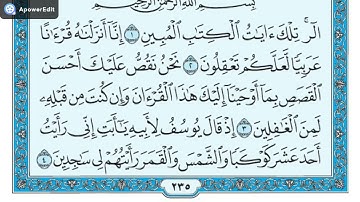 ApowerEdit
بِسْمِ ٱللَّهِ ٱلرَّحْمَٰنِ ٱلرَّحِيمِ
الٓر ۚ تِلْكَ ءَايَٰتُ ٱلْكِتَٰبِ ٱلْمُبِينِ ١ إِنَّآ أَنزَلْنَٰهُ قُرْءَٰنًا
عَرَبِيًّا لَّعَلَّكُمْ تَعْقِلُونَ ٢ نَحْنُ نَقُصُّ عَلَيْكَ أَحْسَنَ
ٱلْقَصَصِ بِمَآ أَوْحَيْنَآ إِلَيْكَ هَٰذَا ٱلْقُرْءَانَ وَإِن كُنتَ مِن قَبْلِهِۦ
لَمِنَ ٱلْغَٰفِلِينَ ٣ إِذْ قَالَ يُوسُفُ لِأَبِيهِ يَٰٓأَبَتِ إِنِّى رَأَيْتُ
أَحَدَ عَشَرَ كَوْكَبًا وَٱلشَّمْسَ وَٱلْقَمَرَ رَأَيْتُهُمْ لِى سَٰجِدِينَ ٤
٢٣٥